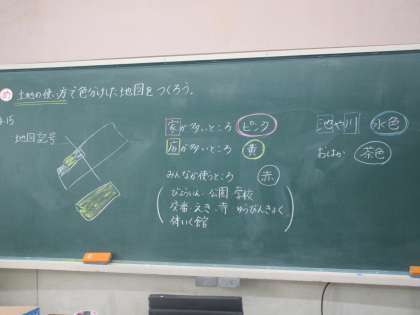 め 土地の使い方で色分けした地図をつくろう。
P.15
地図記号
家が多いところ ピンク
店が多いところ 黄
みんなが使うところ 赤
びょういん 公園 学校
交番 えき 寺 ゆうびんきょく
体いく館
池や川 水色
おはか 茶色